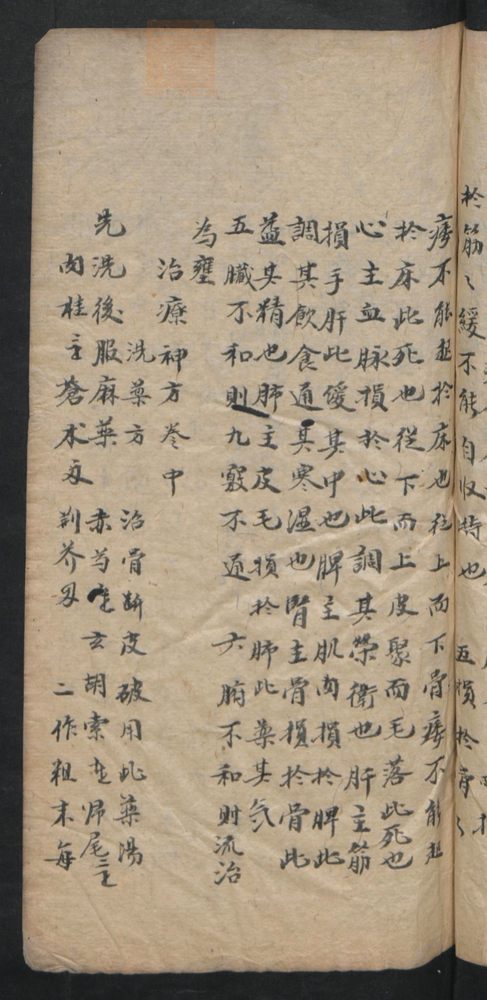 於筋〻緩不能自收持也 五損於骨〻
痿不能起於床也從上而下骨痿不能起
於床此死也從下而上皮聚而毛落此死也
心主血脉損於心此調其榮衛也肝主筋
損手肝此緩其中也脾主肌肉損於脾此
調其飲食通其寒濕也腎主骨損於骨此
益其精也肺主皮毛損於肺此藥其気
五臟不和則九竅不通 六腑不和則流治
為壅
治療神方卷中
洗藥方 治骨斷皮破用此藥湯
先洗後服麻藥 赤芍 玄胡索 归尾
肉桂 蒼朮 荆芥 二作粗末每